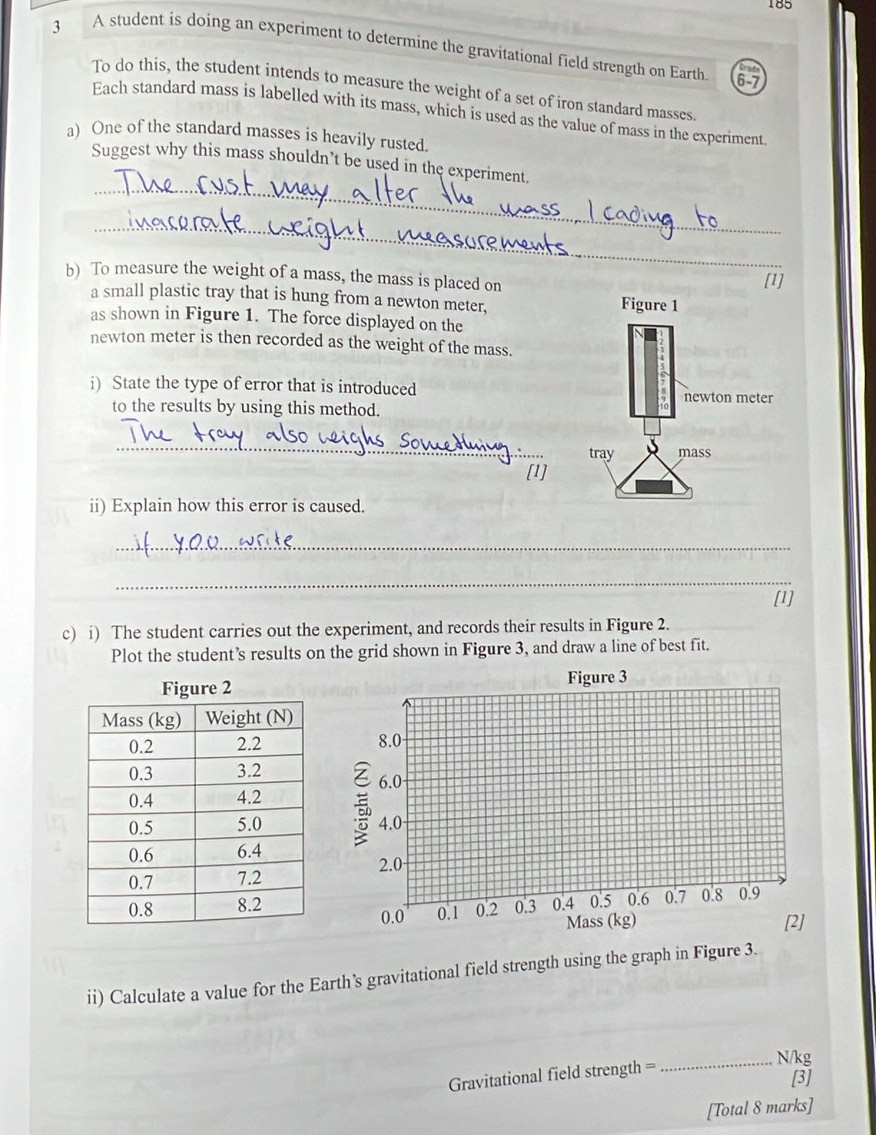 185
3 A student is doing an experiment to determine the gravitational field strength on Earth.
Grade
6-7
To do this, the student intends to measure the weight of a set of iron standard masses.
Each standard mass is labelled with its mass, which is used as the value of mass in the experiment.
a) One of the standard masses is heavily rusted.
Suggest why this mass shouldn't be used in the experiment.
The rust may alter the mass, leading to
inacurate weight measurements
[1]
b) To measure the weight of a mass, the mass is placed on
a small plastic tray that is hung from a newton meter,
as shown in Figure 1. The force displayed on the
newton meter is then recorded as the weight of the mass.
Figure 1
N
1
2
3
4
5
6
7
8
9
10
newton meter
tray
mass
i) State the type of error that is introduced
to the results by using this method.
The tray also weighs something.
[1]
ii) Explain how this error is caused.
if you write
[1]
c) i) The student carries out the experiment, and records their results in Figure 2.
Plot the student's results on the grid shown in Figure 3, and draw a line of best fit.
Figure 2
Mass (kg) Weight (N)
0.2 2.2
0.3 3.2
0.4 4.2
0.5 5.0
0.6 6.4
0.7 7.2
0.8 8.2
Figure 3
Weight (N)
8.0
6.0
4.0
2.0
0.0 0.1 0.2 0.3 0.4 0.5 0.6 0.7 0.8 0.9
Mass (kg)
[2]
ii) Calculate a value for the Earth's gravitational field strength using the graph in Figure 3.
Gravitational field strength = N/kg
[3]
[Total 8 marks]